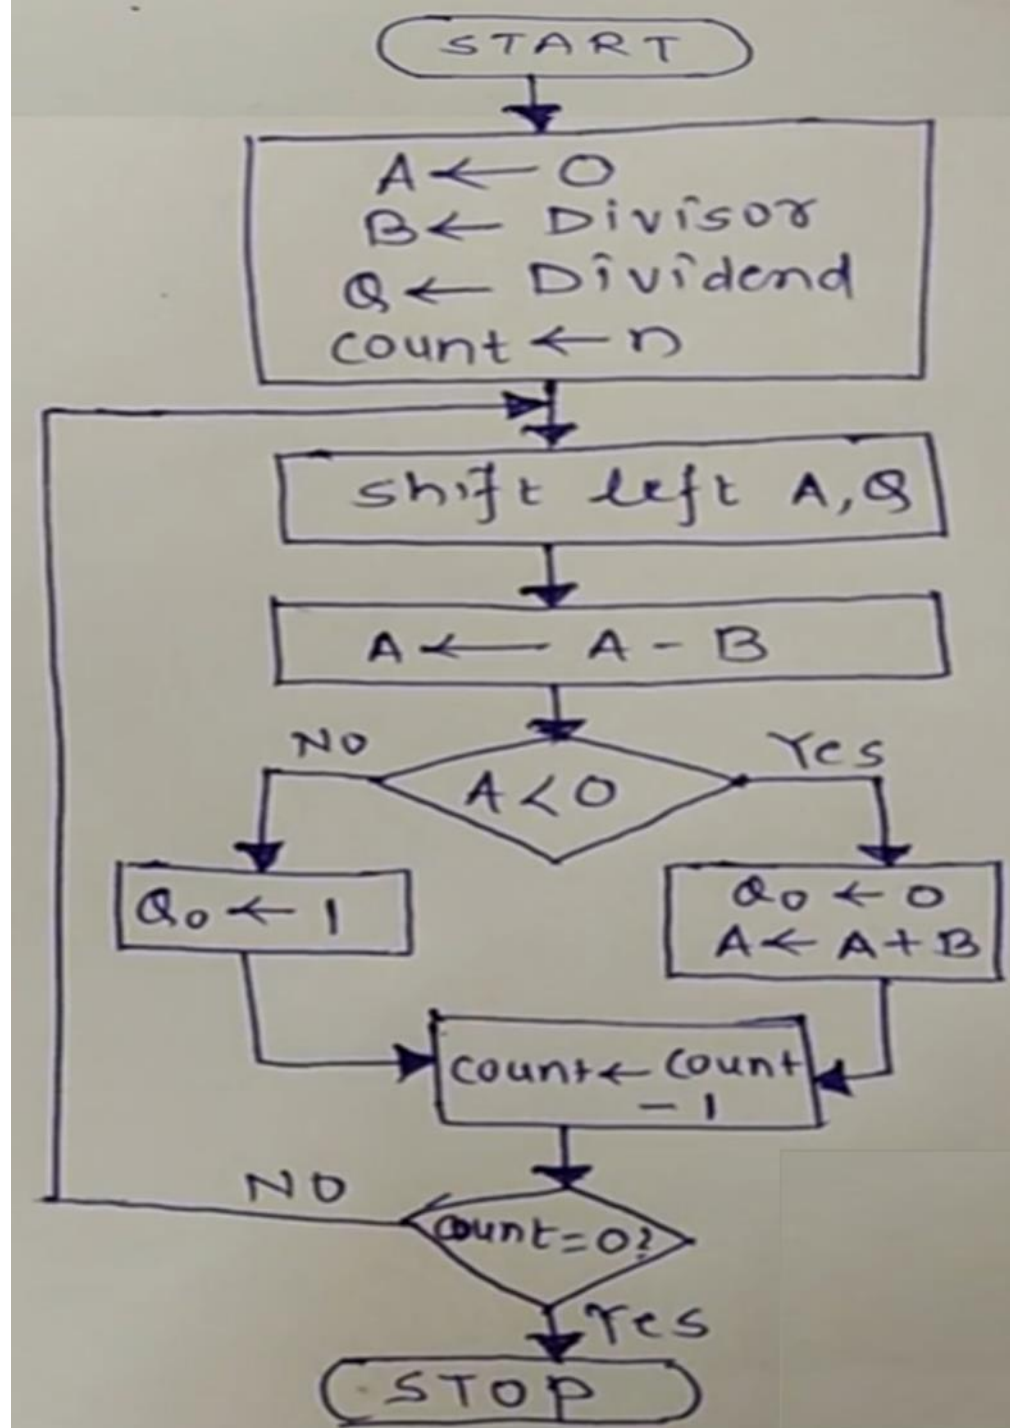 START
A ← 0
B ← Divisor
Q ← Dividend
count ← n
shift left A, Q
A ← A - B
A < 0
No
Yes
Q0 ← 1
Q0 ← 0
A ← A + B
count ← count
- 1
count = 0?
NO
Yes
STOP